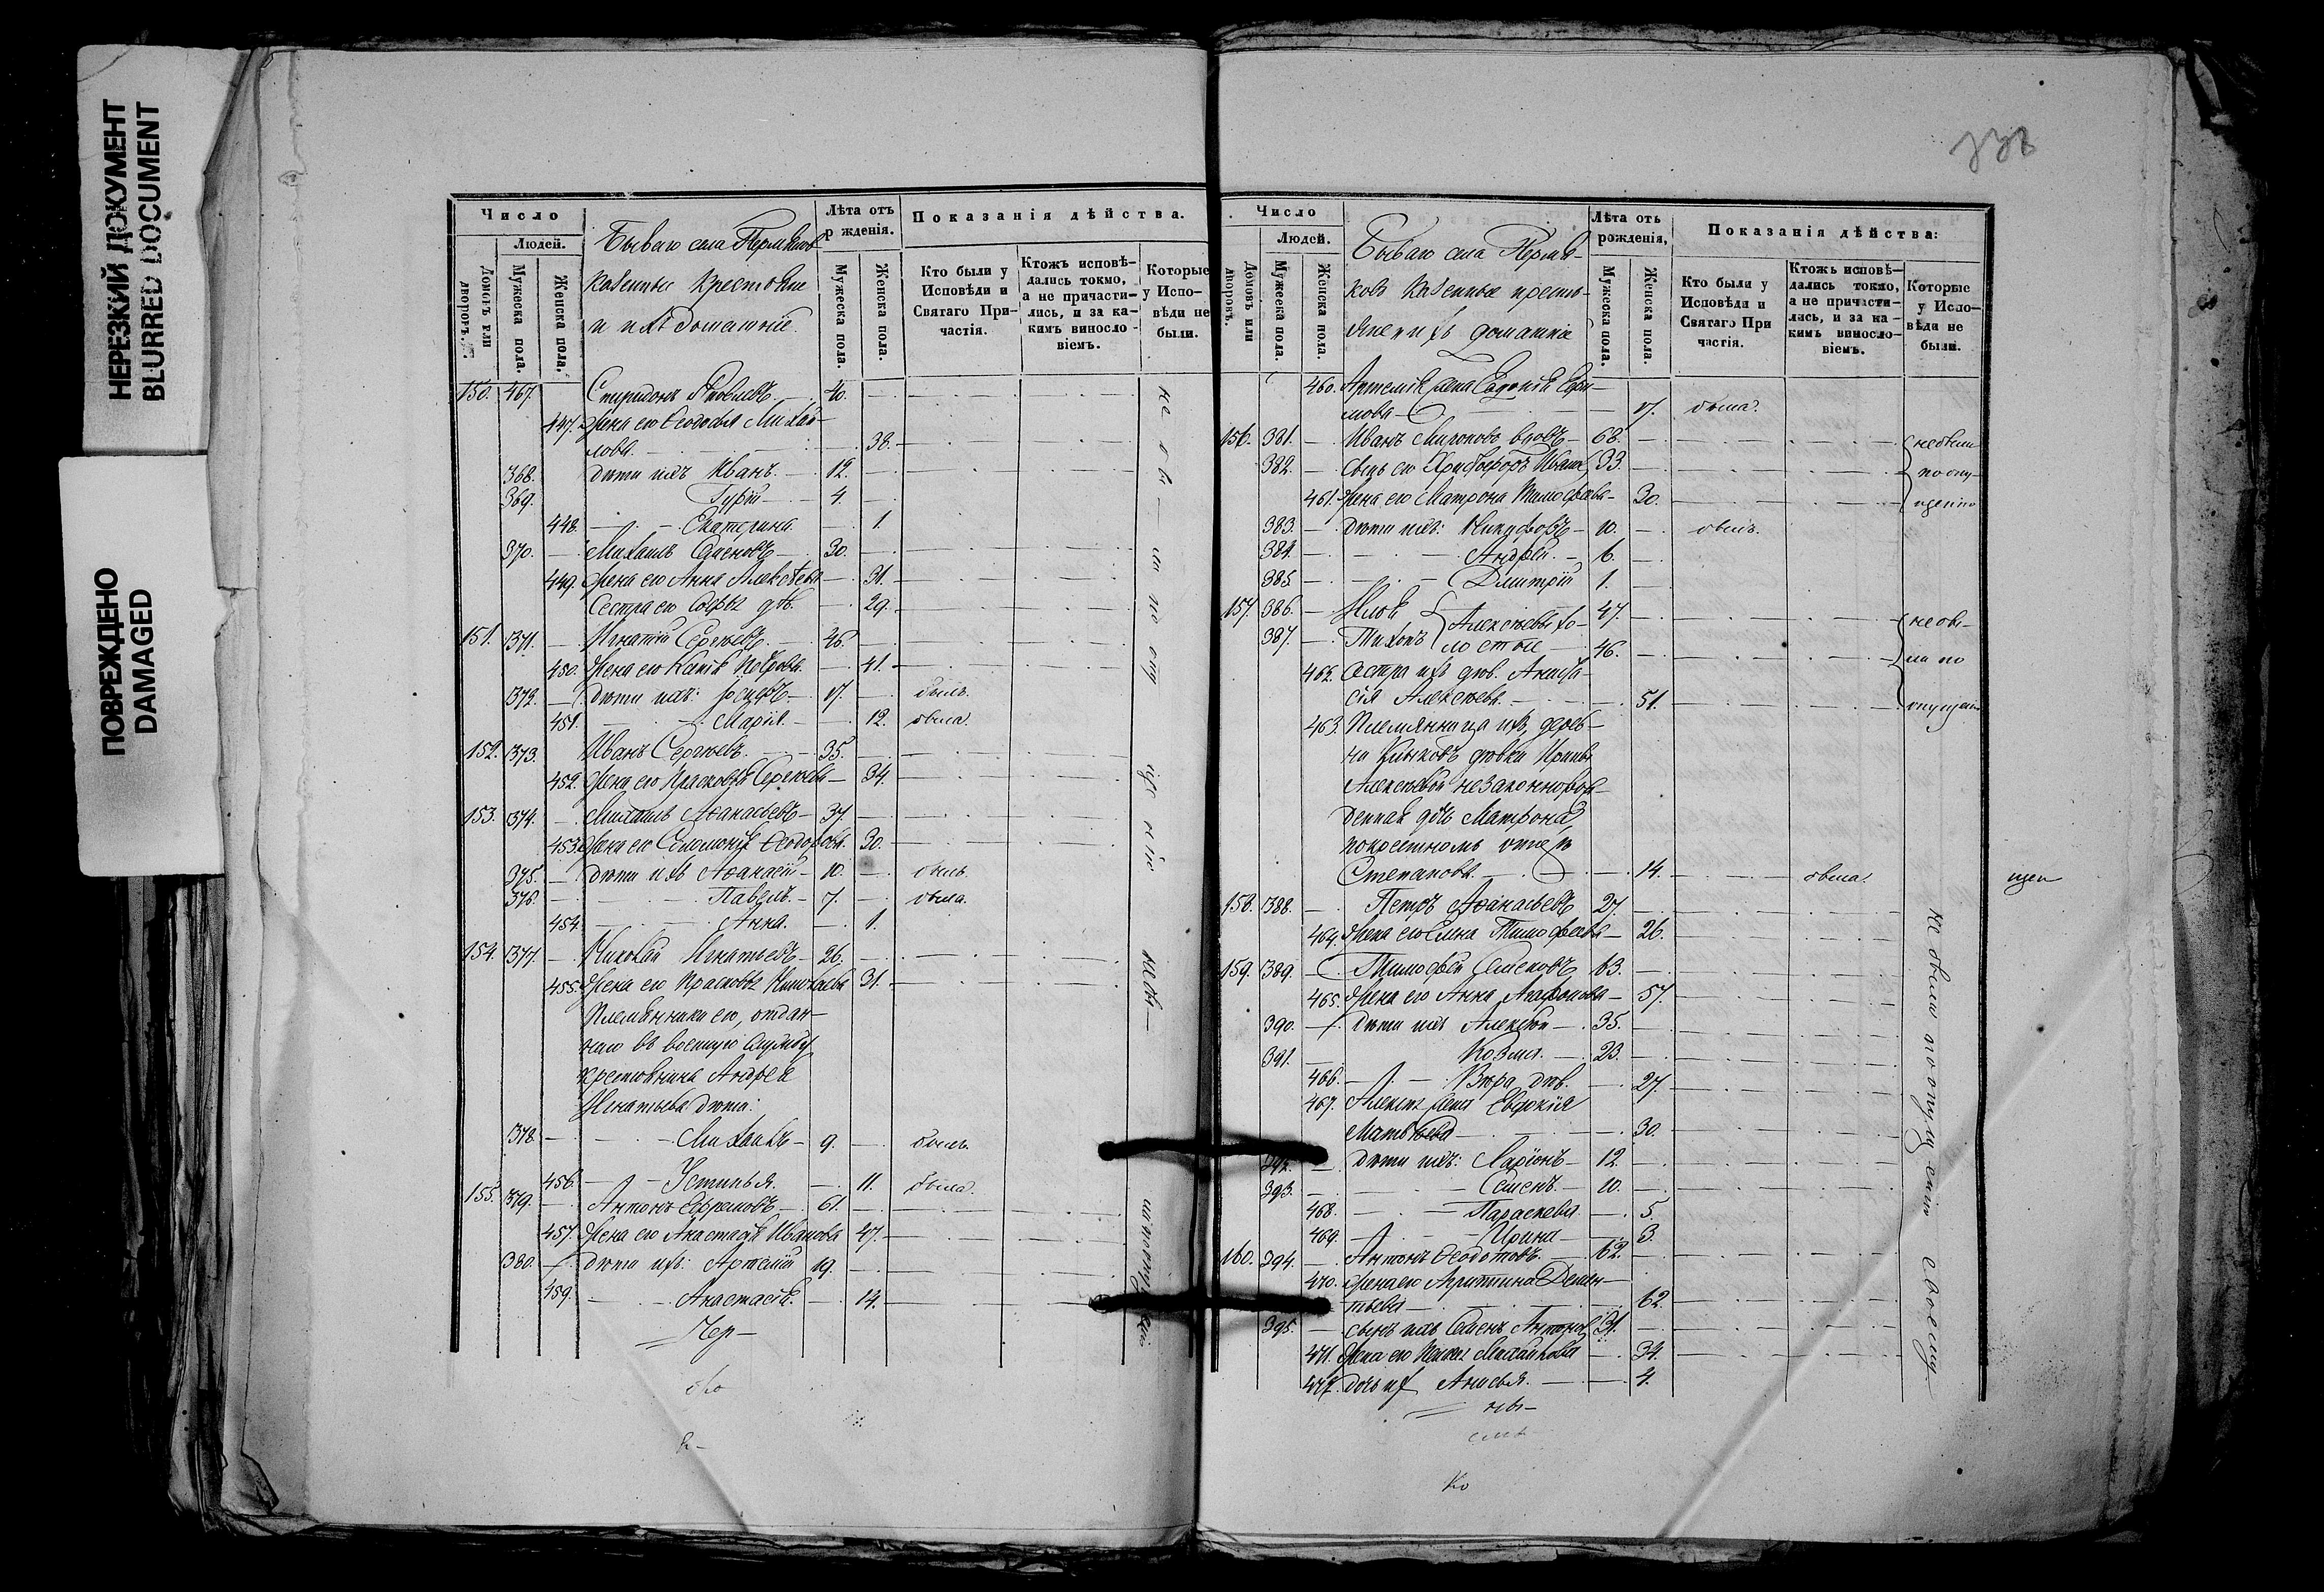 НЕРЕЗКИЙ ДОКУМЕНТ
BLURRED DOCUMENT
ПОВРЕЖДЕНО
DAMAGED
Число
Людей.
Домовъ или дворовъ.
Мужеска пола.
Женска пола.
Бывшаго села
казенные крестьяне
и ихъ домашніе.
Лѣта отъ рожденія.
Мужеска пола.
Женска пола.
Показанія дѣйства.
Кто были у Исповѣди и Святаго Причастія.
Ктожъ исповѣдались токмо, а не причастились, и за какимъ винословіемъ.
Которые у Исповѣди не были.
150. 467. Спиридонъ Яковлевъ 40.
447. Жена его Ѳеодосья Михай-
лова. 38.
368. дѣти ихъ Иванъ. 12.
369. Гурій 4
448. Екатерина 1.
370. Михаилъ Семеновъ 30.
449. Жена его Анна Алексѣева 31.
Сестра его дѣв. 29.
151. 371. Игнатій Сергѣевъ 46.
450. Жена его Петрова. 41.
372. дѣти ихъ: 17. былъ.
451. Марія. 12. была.
152. 373. Иванъ Сергѣевъ. 35.
452. Жена его Прасковья Сергѣева 34.
153. 374. Михаилъ Аѳанасьевъ 37.
453. Жена его Соломонія Ѳеодорова. 30.
375. дѣти ихъ Аѳанасій 10. былъ.
376. Павелъ. 7. была.
454. Анна. 1.
154. 377. Николай Игнатьевъ 26.
455. Жена его Прасковья Николаева 31.
Племянники его, отдан-
наго въ военную службу
крестьянина Андрея
Игнатьева дѣти:
378. Михаилъ 9. былъ.
456. Устинья. 11. была.
155. 379. Антонъ Ефремовъ 61.
457. Жена его Анастасія Иванова 47.
380. дѣти ихъ: Артемій 19.
459. Анастасія. 14.
Чер-
Число
Людей.
Домовъ или дворовъ.
Мужеска пола.
Женска пола.
Лѣта отъ рожденія,
Мужеска пола.
Женска пола.
Показанія дѣйства:
Кто были у Исповѣди и Святаго Причастія.
Ктожъ исповѣдались токмо, а не причастились, и за какимъ винословіемъ.
Которые у Исповѣди не были.
ковъ казенные крестья-
яне и ихъ домашніе
460. Артемія жена Евдокія Ефи-
мова 17. была.
156. 381. Иванъ вдовъ 68. не были
382. Сынъ его Христофоръ Ивановъ 33. по опу-
461. Жена его Матрона Тимофеева 30. щенію
383. дѣти ихъ: Никифоръ 10. былъ.
384. Андрей. 6.
385. Дмитрій 1.
157. 386. Илья Алексѣевы хо- 47. не бы-
387. Тихонъ лостые 46. ли по
462. Сестра ихъ дѣв. Анаста-
сія Алексѣева. 51. опущен.
463. Племянница ихъ, дерев-
ни дѣвки Ирины
Алексѣевой незаконнорож-
денная дочь Матрона,
по крестномъ отцѣ
Степанова 14. была. щен
158. 388. Петръ Аѳанасьевъ 27.
464. Жена его Елена Тимофеева 26.
159. 389. Тимофей Семеновъ 63.
465. Жена его Анна Агафонова 57.
390. Дѣти ихъ Алексѣй 35.
391. Козма. 23.
466. Вѣра дѣв. 27.
467. Алексѣя жена Евдокія
Матвѣева 30.
392. Дѣти ихъ: Ларіонъ 12.
393. Семенъ. 10.
468. Параскева 5.
469. Ирина 3.
160. 394. Антонъ Ѳеодотовъ. 62.
470. Жена его Агриппина Демен-
тьева 62.
395. сынъ ихъ Семенъ Антонов 31.
471. Жена его Михайлова 34.
472. дочь их Анисья. 4.
не были по опущенію своему
Ко